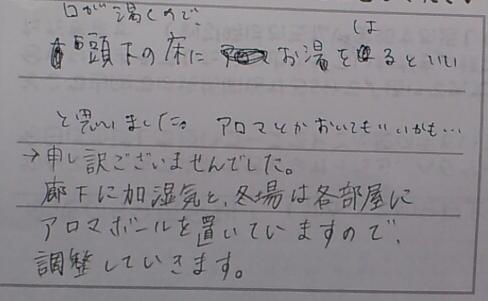 口が渇くので、
頭下の床にお湯をはるといい
と思いました。アロマとかおいてもいいかも…
→申し訳ございませんでした。
廊下に加湿気と、冬場は各部屋に
アロマボールを置いていますので、
調整していきます。